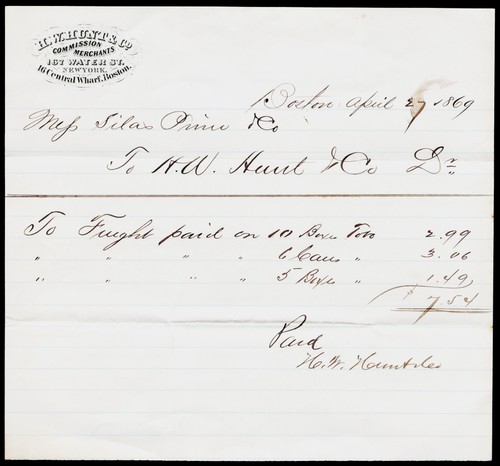 H.W. HUNT & Co.
COMMISSION
MERCHANTS
167 WATER ST.
NEW YORK.
16 Central Wharf, Boston.
Boston April 27 1869
Mess Silas Pierce & Co
To H.W. Hunt & Co Dr,,
To Freight paid on 10 Boxes Tobo 2.99
" " " " 6 Cases " 3.06
" " " " 5 Boxes " 1.49
$ 7.54
Paid
H. W. Hunt & Co